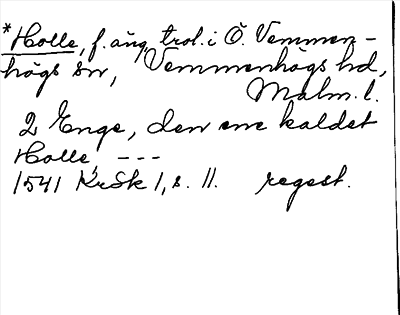 *Holle, f. äng, trol. i Ö. Vemmen-
högs sn, Vemmenhögs hd,
Malm. l.
2 Enge, den ene kaldet
Holle, ---
1541 KrSk 1, s. 11. regest.